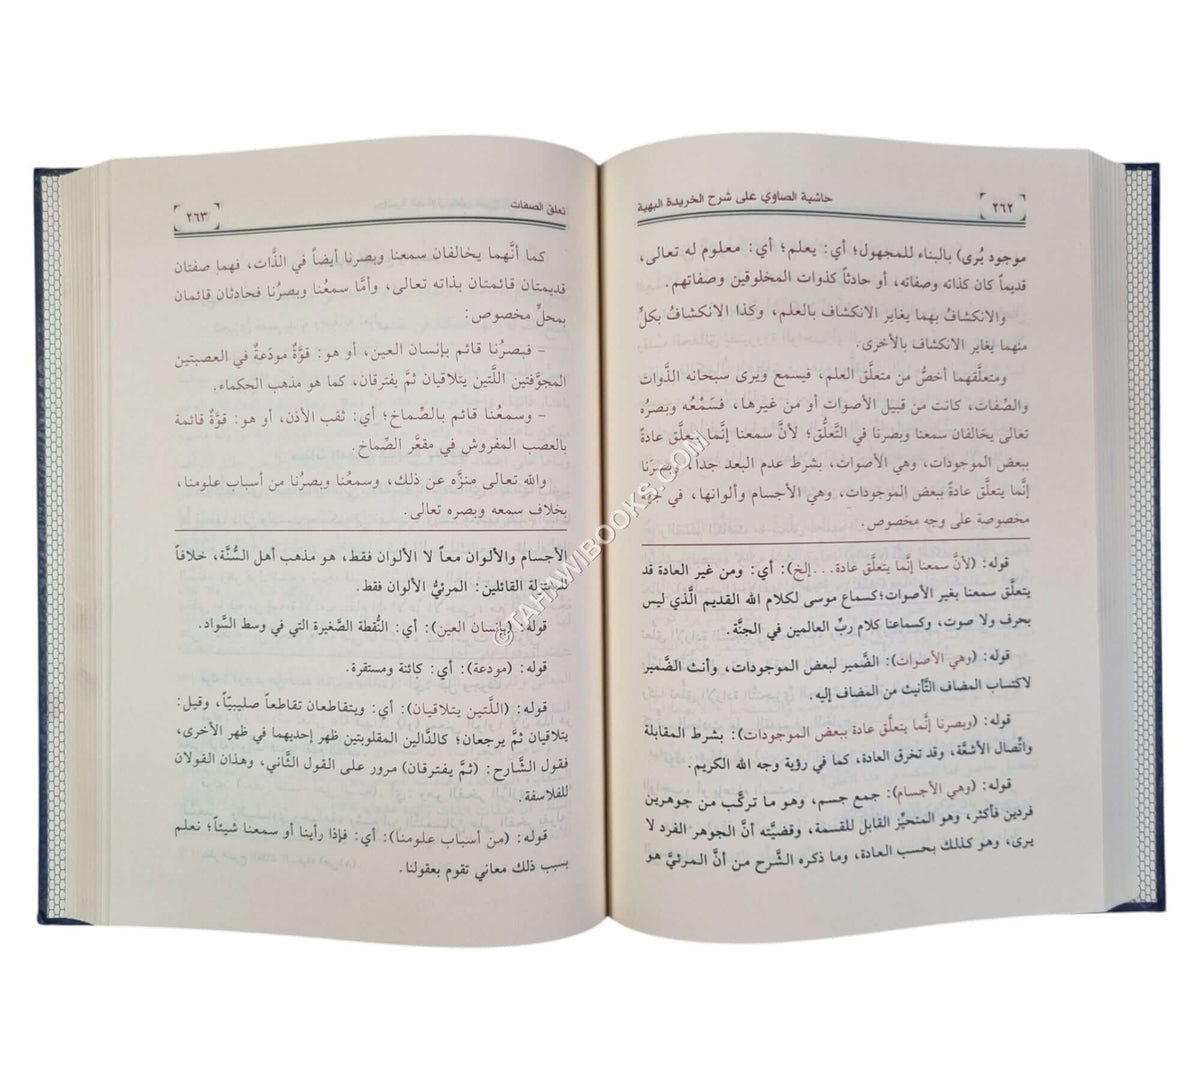 ٢٦٢
حاشية الصاوي على شرح الخريدة البهية
موجود يُرى) بالبناء للمجهول؛ أي: يعلم؛ أي: معلوم له تعالى،
قديماً كان كذاته وصفاته، أو حادثاً كذوات المخلوقين وصفاتهم.
والانكشافُ بهما يغاير الانكشاف بالعلم، وكذا الانكشافُ بكلٍّ
منهما يغاير الانكشاف بالأخرى.
ومتعلَّقهما أخصُّ من متعلَّق العلم، فيسمع ويرى سبحانه الذَّوات
والصِّفات، كانت من قبيل الأصوات أو من غيرها، فسَمْعُه وبصرُه
تعالى يخالفان سمعنا وبصرنا في التَّعلُّق؛ لأنَّ سمعنا إنَّما يتعلَّق عادةً
ببعض الموجودات، وهي الأصوات، بشرط عدم البعد جداً، وبصرَنا
إنَّما يتعلَّق عادةً ببعض الموجودات، وهي الأجسام وألوانها، في جهة
مخصوصة على وجه مخصوص.
قوله: (لأنَّ سمعنا إنَّما يتعلَّق عادة...إلخ): أي: ومن غير العادة قد
يتعلَّق سمعنا بغير الأصوات؛ كسماع موسى لكلام الله القديم الَّذي ليس
بحرف ولا صوت، وكسماعنا كلام ربِّ العالمين في الجنَّة.
قوله: (وهي الأصوات): الضَّمير لبعض الموجودات، وأنث الضَّمير
لاكتساب المضاف التَّأنيث من المضاف إليه.
قوله: (وبصرنا إنَّما يتعلَّق عادة ببعض الموجودات): بشرط المقابلة
واتِّصال الأشعَّة، وقد تخرق العادة، كما في رؤية وجه الله الكريم.
قوله: (وهي الأجسام): جمع جسم، وهو ما تركَّب من جوهرين
فردين فأكثر، وهو المتحيِّز القابل للقسمة، وقضيَّته أنَّ الجوهر الفرد لا
يرى، وهو كذلك بحسب العادة، وما ذكره الشَّرح من أنَّ المرئيَّ هو
تعلق الصفات
٢٦٣
كما أنَّهما يخالفان سمعنا وبصرنا أيضاً في الذَّات، فهما صفتان
قديمتان قائمتان بذاته تعالى، وأمَّا سمعُنا وبصرُنا فحادثان قائمان
بمحلٍّ مخصوص:
- فبصرُنا قائم بإنسان العين، أو هو: قوَّةٌ مودَعةٌ في العصبتين
المجوَّفتين اللَّتين يتلاقيان ثمَّ يفترقان، كما هو مذهب الحكماء.
- وسمعُنا قائم بالصِّماخ؛ أي: ثقب الأذن، أو هو: قوَّةٌ قائمة
بالعصب المفروش في مقعَّر الصِّماخ.
والله تعالى منزَّه عن ذلك، وسمعُنا وبصرُنا من أسباب علومنا،
بخلاف سمعه وبصره تعالى.
الأجسام والألوان معاً لا الألوان فقط، هو مذهب أهل السُّنَّة، خلافاً
للمعتزلة القائلين: المرئيُّ الألوان فقط.
قوله: (بإنسان العين): أي: النُّقطة الصَّغيرة التي في وسط السَّواد.
قوله: (مودعة): أي: كائنة ومستقرة.
قوله: (اللَّتين يتلاقيان): أي: ويتقاطعان تقاطعاً صليبيّاً، وقيل:
يتلاقيان ثمَّ يرجعان؛ كالدَّالين المقلوبتين ظهر إحديهما في ظهر الأخرى،
فقول الشَّارح: (ثمَّ يفترقان) مرور على القول الثَّاني، وهذان القولان
للفلاسفة.
قوله: (من أسباب علومنا): أي: فإذا رأينا أو سمعنا شيئاً؛ نعلم
بسبب ذلك معاني تقوم بعقولنا.
©TAHAWIBOOKS.COM